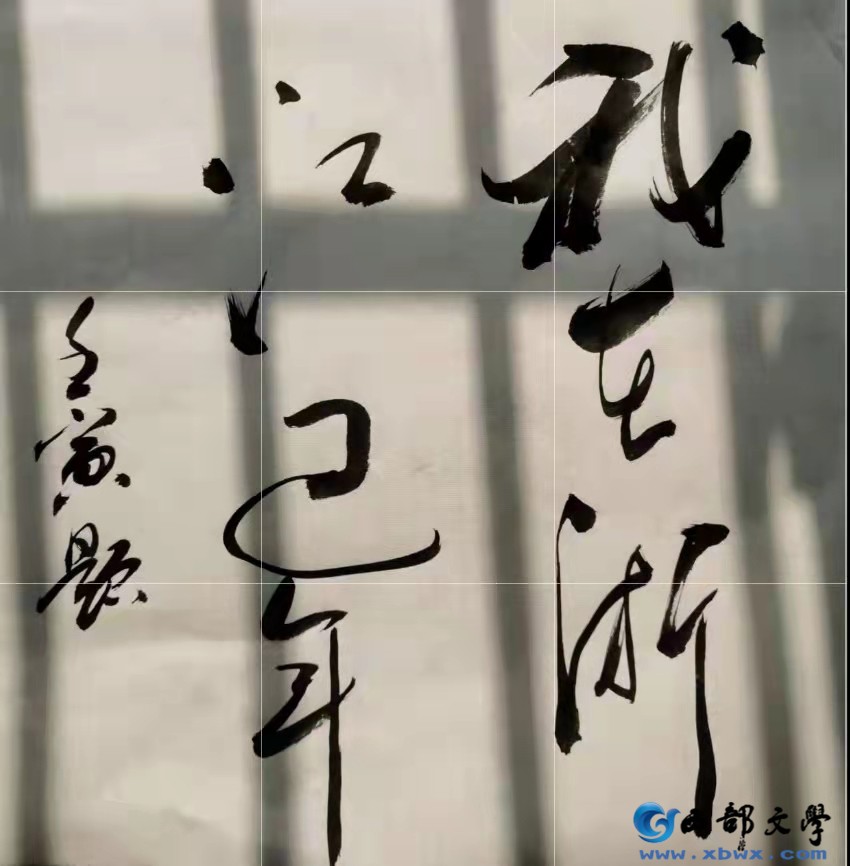 我在浙
江过年
壬寅题
西部文學
www.xbwx.com